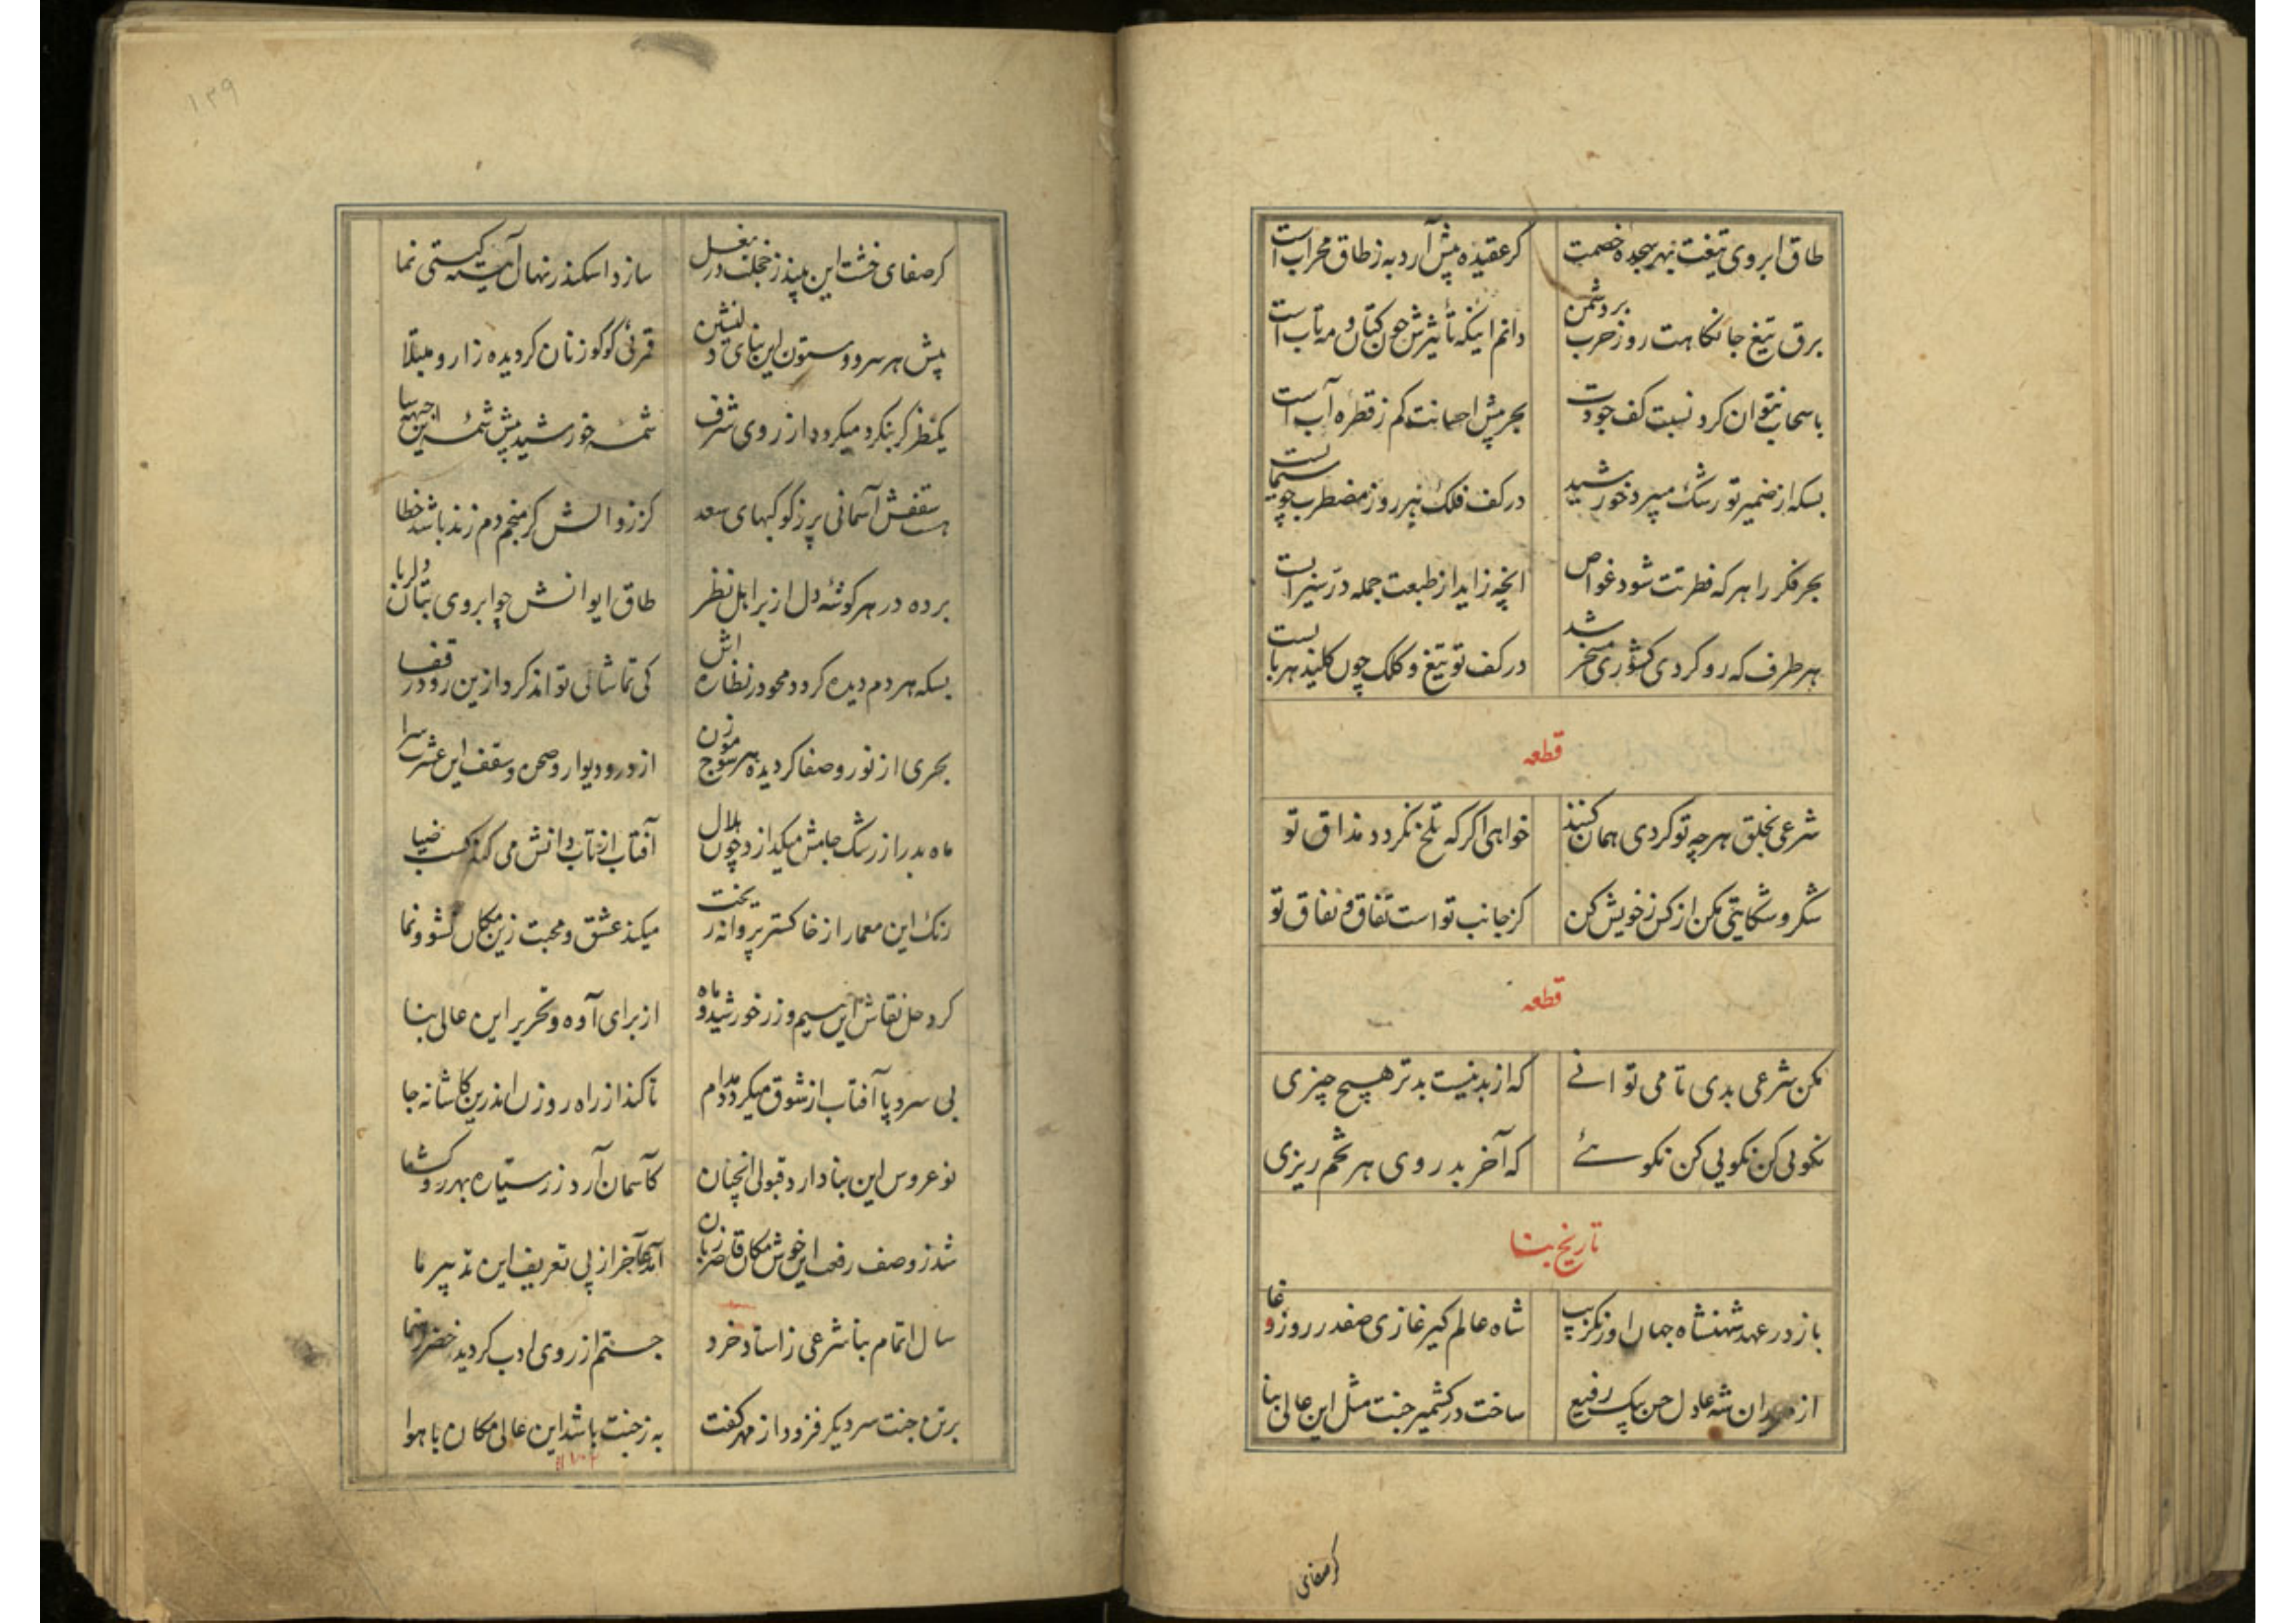 طاق ابروی تیغت بهر سجده خصمت کر عقیده پیش آرد به ز طاق محراب است
برق تیغ جانکاهت روز حرب بر دشمن دانم اینکه تأثیرش چون کتان و مهتاب است
با سحاب نتوان کرد نسبت کف جودت بحر پیش احسانت کم ز قطره آب است
بسکه از ضمیر تو رشک میبرد خورشید در کف فلک هر روز مضطرب چو سیمابست
بحر فکر را هر که فطرتت شود غواص انچه زاید از طبعت جمله در سیرابست
هر طرف که رو کردی کشوری مسخر شد در کف تو تیغ و کلک چون کلید هر بابست
قطعه
شرعی بخلق هر چه تو کردی همان کنند خواهی اکر که تلخ نکردد مذاق تو
شکر و شکایتی مکن از کس ز خویش کن کز جانب تو است تفاق و نفاق تو
قطعه
مکن شرعی بدی تا می توانے که از بد نیست بدتر هیچ چیزی
نکویی کن نکویی کن نکوئے که آخر بدروی هر تخم ریزی
تاریخ بنا
باز در عهد شهنشاه جهان اورنکزیب شاه عالم کیر غازی صفدر روز وغا
از شه عادل حسن بیک رفیع ساخت در کشمیر جنت مثل این عالی بنا
کر صفای
۱۳۹
کر صفای خشت این بیند ز خجلت در بغل سازد اسکندر نهان آیینه کیتی نما
پیش هر سرو و ستون این بنای دلنشین قمری کوکو زنان کردیده زار و مبتلا
یکنظر کر بنکرد میکردد از روی شرف شمسه خورشید پیش شمسه این جبهه سا
هست سقفش آسمانی پر ز کوکبهای سعد کز زوالش کر منجم دم زند باشد خطا
برده در هر کوشه دل از بر اهل نظر طاق ایوانش چو ابروی بتان دلربا
بسکه هر دم دیده کردد محو در نظاره اش کی تماشائی تواند کرد ازین رو در قفا
بحری از نور و صفا کردیده هر سو موج زن از در و دیوار و صحن و سقف این عشرت سرا
ماه بدر از رشک جامش میکدازد چون هلال آفتاب از تاب دانش می کند کسب ضیا
رنک این معمار از خاکستر پروانه ریخت میکند عشق و محبت زین مکان نشو و نما
کرد حل نقاش این سیم و زر خورشید و ماه از برای آوه و تحریر این عالی بنا
بی سر و پا آفتاب از شوق میکردد مدام تا کند از راه روزن اندرین کاشانه جا
نو عروس این بنا دارد قبولی آنچنان کآسمان آرد زر سیاره بهر رو کشا
شد ز وصف رفعت این خوش مکان قاصر زبان آخر از پی تعریف این تدبیر ما
سال اتمام بنا شرعی ز استاد خرد جستم از روی ادب کردید خضر رهنما
بر تن جنت سر دیکر فزود از مهر کفت به ز جنت باشد این عالی مکان با هوا